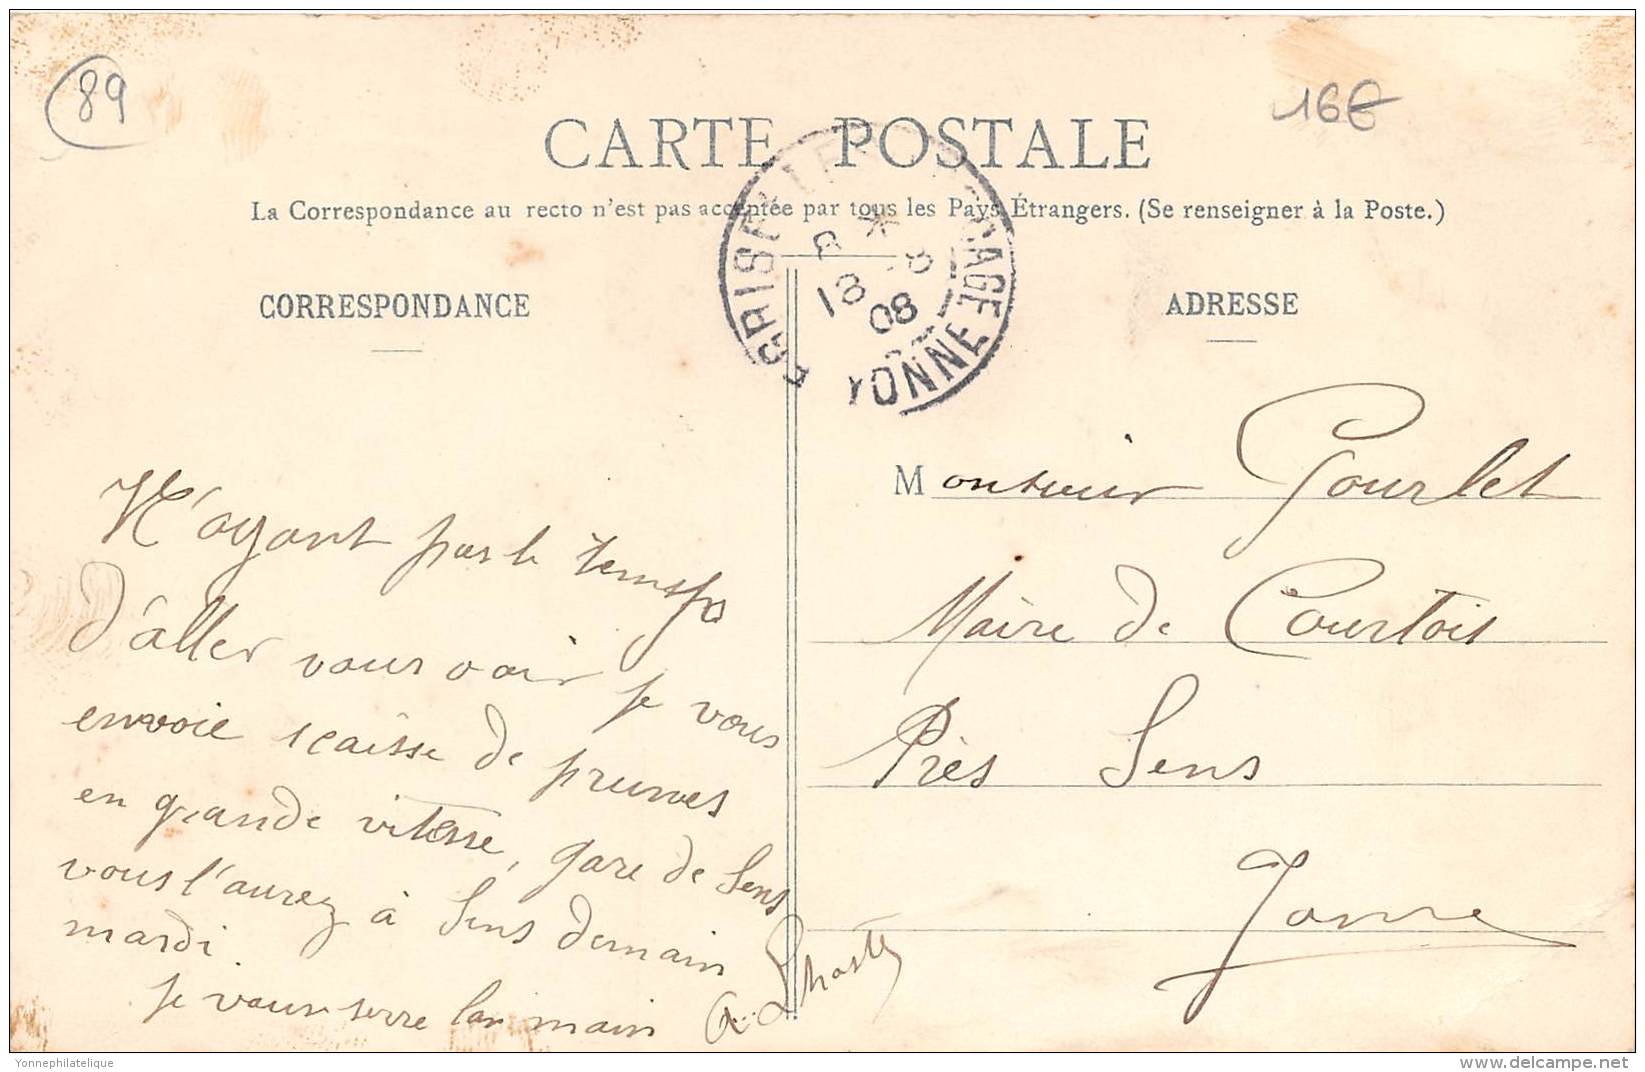 89
16€
CARTE POSTALE
La Correspondance au recto n'est pas acceptée par tous les Pays Étrangers. (Se renseigner à la Poste.)
8 *
18 -8
08
YONNE
CORRESPONDANCE
ADRESSE
N'ayant pas le temps
d'aller vous voir je vous
envoie 1 caisse de prunes
en grande vitesse, gare de Sens
vous l'aurez à Sens demain
mardi.
Je vous serre la main
Monsieur Gourlet
Maire de Courtois
Près Sens
Yonne
Yonnephilatelique
www.delcampe.net